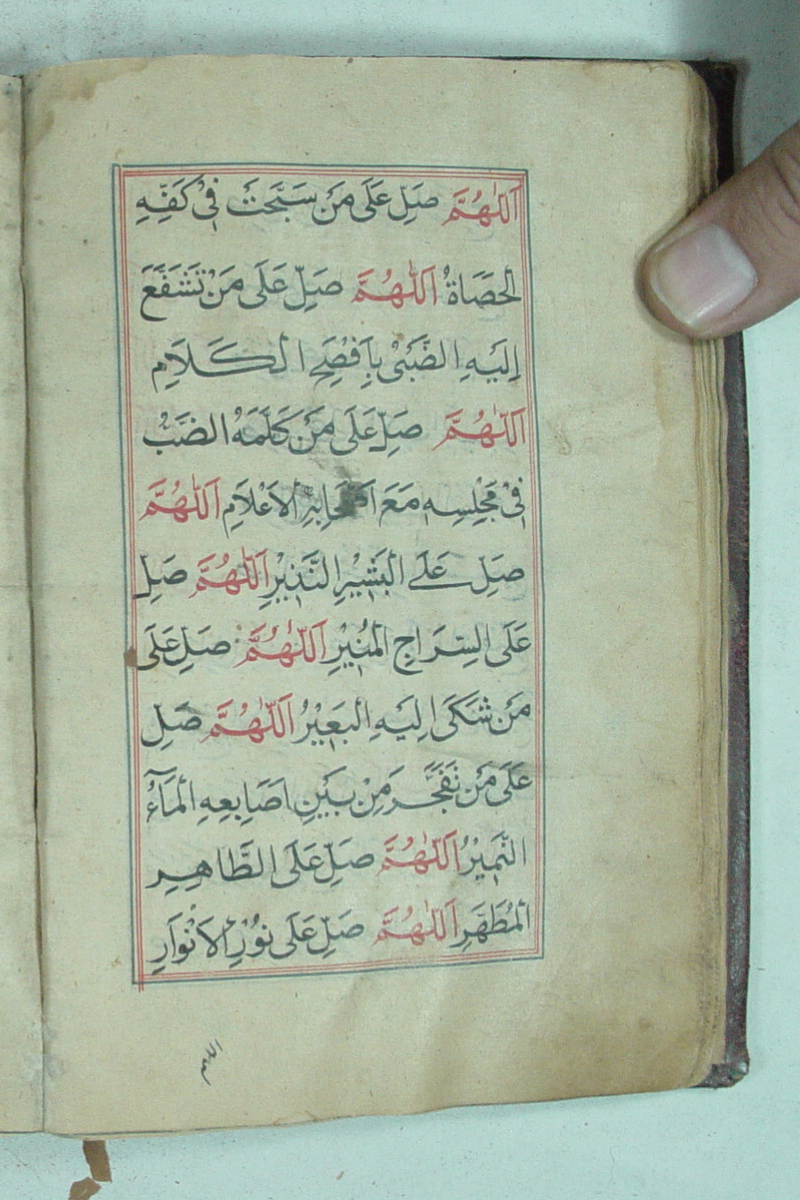 اَللّٰهُمَّ صَلِّ عَلَى مَنْ سَبَّحَتْ فِىْ كَفِّهِ
الْحَصَاةُ اَللّٰهُمَّ صَلِّ عَلَى مَنْ تَشَفَّعَ
اِلَيْهِ الظَّبْىُ بِاَفْصَحِ الْكَلَامِ
اَللّٰهُمَّ صَلِّ عَلَى مَنْ كَلَّمَهُ الضَبُّ
فِىْ مَجْلِسِهِ مَعَ اَصْحَابِهِ الْاَعْلَامِ اَللّٰهُمَّ
صَلِّ عَلَى الْبَشِيْرِ النَّذِيْرِ اَللّٰهُمَّ صَلِّ
عَلَى السِّرَاجِ الْمُنِيْرِ اَللّٰهُمَّ صَلِّ عَلَى
مَنْ شَكَى اِلَيْهِ الْبَعِيْرُ اَللّٰهُمَّ صَلِّ
عَلَى مَنْ تَفَجَّرَ مِنْ بَيْنِ اَصَابِعِهِ الْمَآءُ
النَّمِيْرُ اَللّٰهُمَّ صَلِّ عَلَى الطَّاهِرِ
الْمُطَهَّرِ اَللّٰهُمَّ صَلِّ عَلَى نُوْرِ الْاَنْوَارِ
اللهم